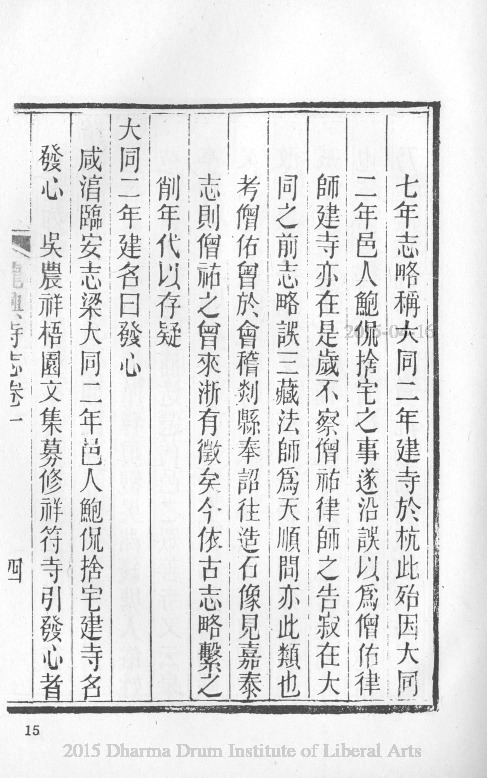 七年志略稱大同二年建寺於杭此殆因大同
二年邑人鮑侃捨宅之事遂沿誤以爲僧佑律
師建寺亦在是歲不察僧祐律師之告寂在大
同之前志略誤三藏法師爲天順問亦此類也
考僧佑曾於會稽剡縣奉詔往造石像見嘉泰
志則僧祐之曾來浙有徵矣今依古志略繫之
削年代以存疑
大同二年建名曰發心
咸淯臨安志梁大同二年邑人鮑侃捨宅建寺名
發心 吳農祥梧園文集募修祥符寺引發心者
龍興寺志卷一
四
15
2015-04-16
2015 Dharma Drum Institute of Liberal Arts